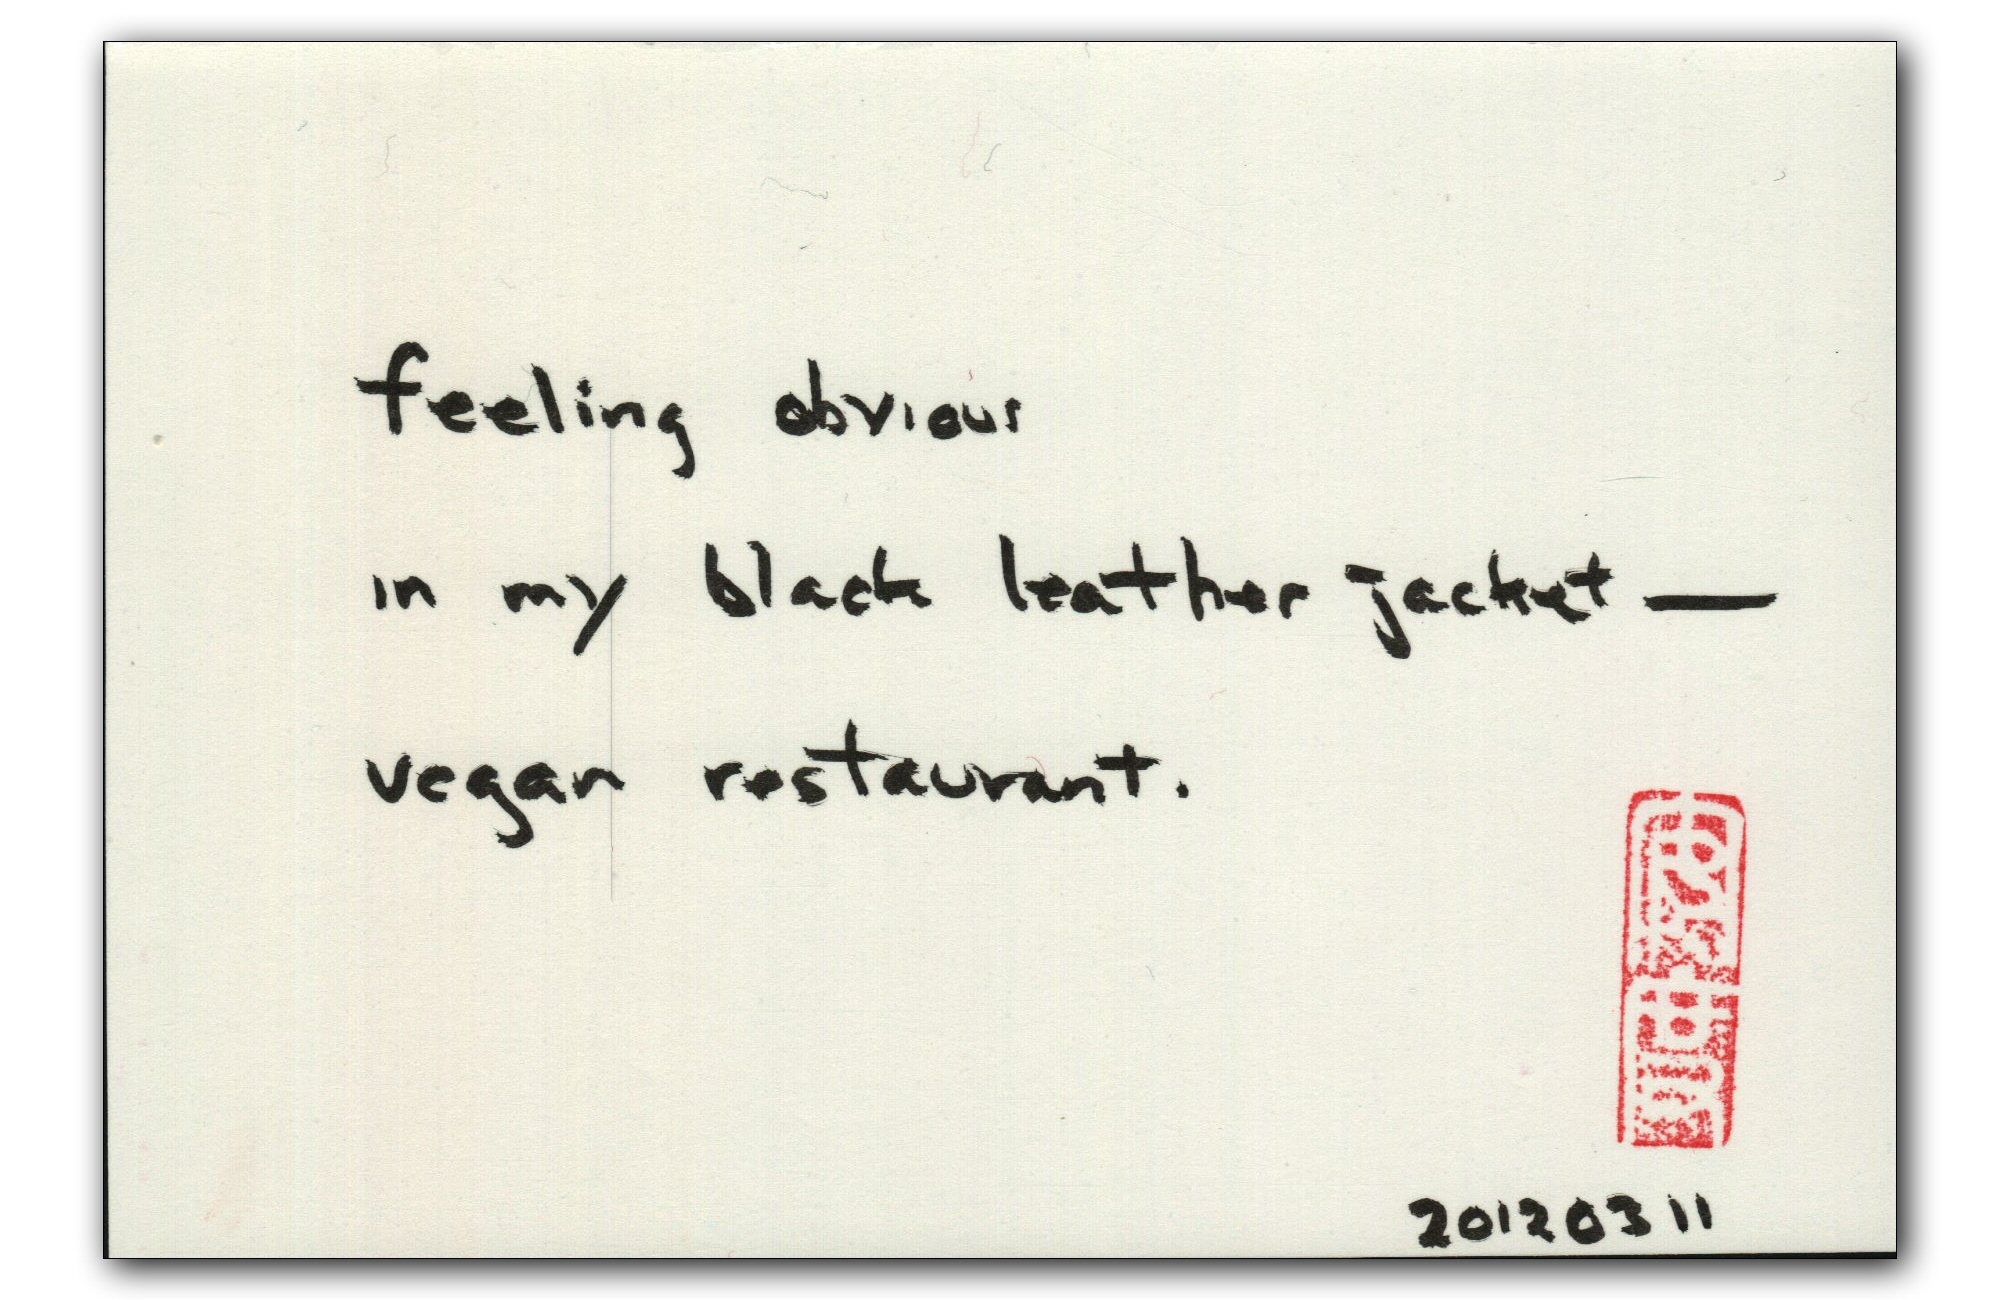 feeling obvious
in my black leather jacket —
vegan restaurant.
20120311